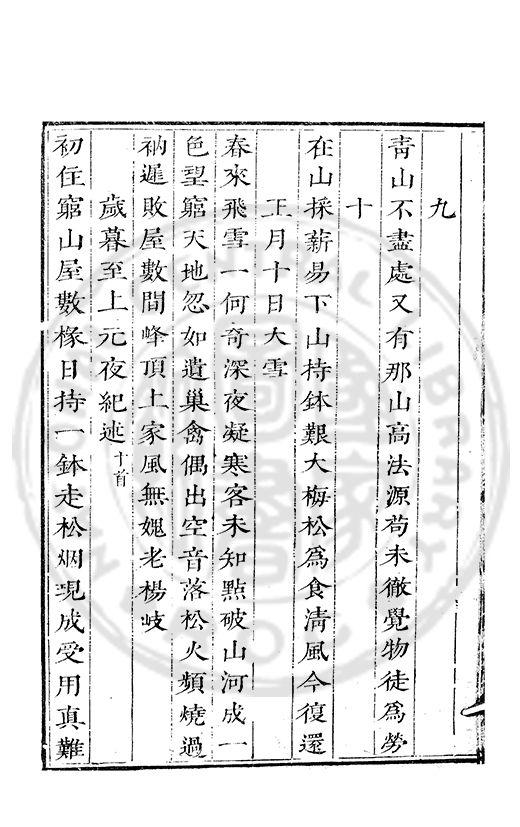 九
青山不盡處又有那山高法源苟未徹覺物徒為勞
十
在山採薪易下山持鉢艱大梅松為食淸風今復還
正月十日大雪
春來飛雪一何奇深夜凝寒客未知點破山河成一
色望窮天地忽如遺巢禽偶出空音落松火頻燒過
衲遲敗屋數間峰頂上家風無媿老楊岐
歲暮至上元夜紀述十首
初住窮山屋數椽日持一鉢走松烟現成受用真難